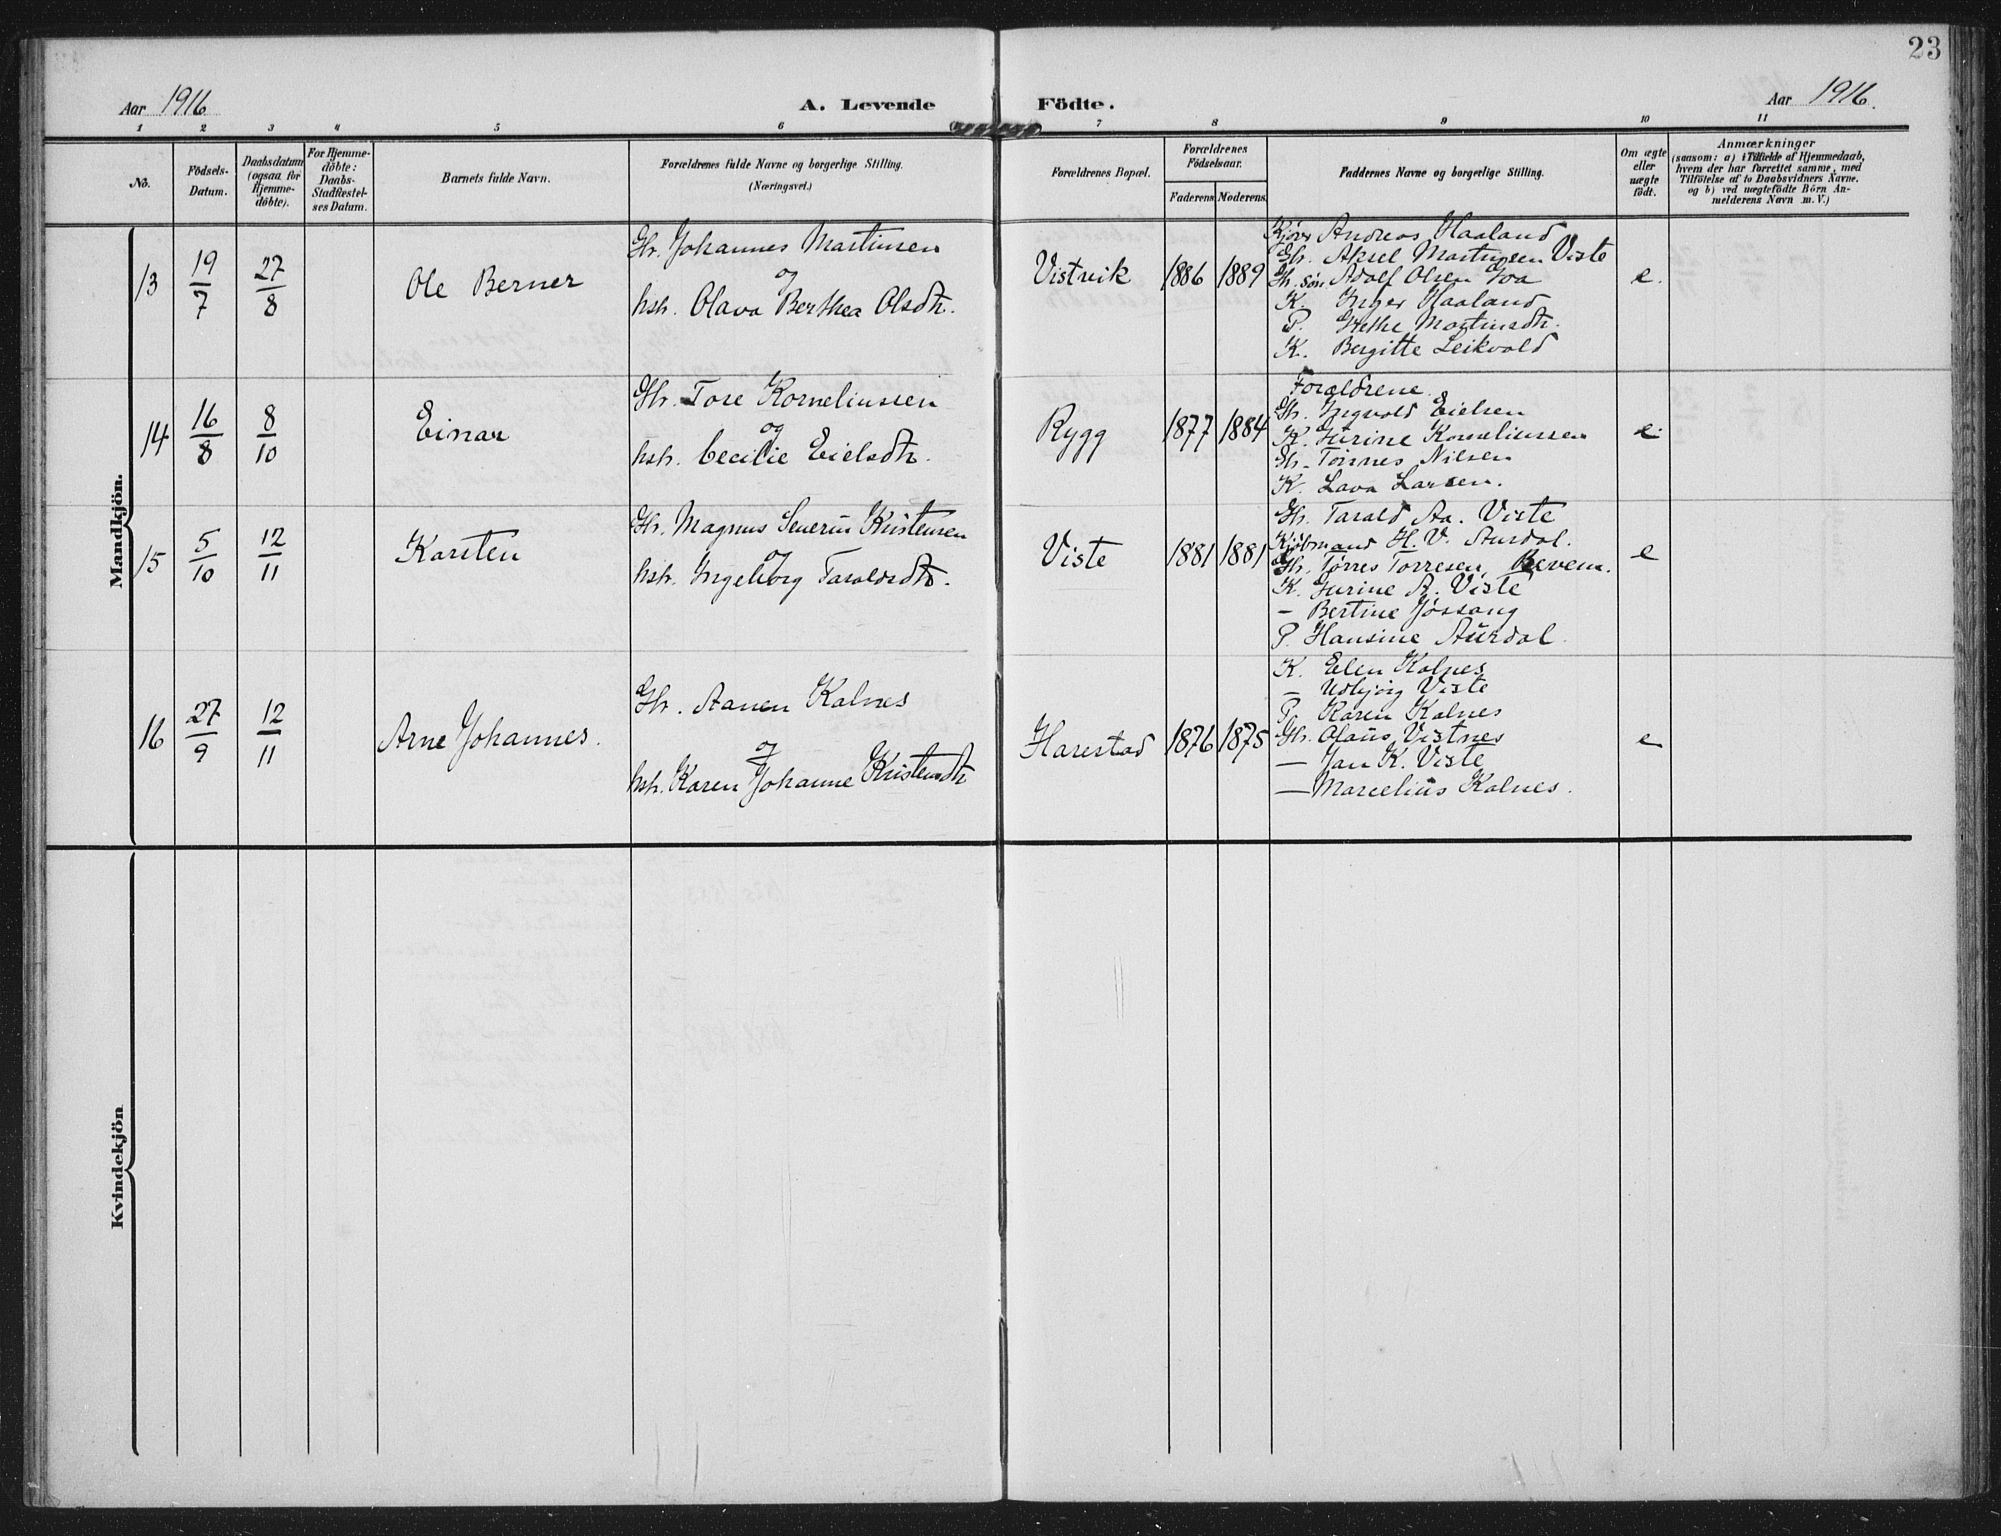 23
Aar 1916
A. Levende Födte.
Aar 1916.
1 2 3 4 5 6 7 8 9 10 11
No.
Födsels-
Datum.
Daabsdatum
(ogsaa for
Hjemme-
döbte).
For Hjemme-
döbte:
Daabs-
Stadfæstel-
ses Datum.
Barnets fulde Navn.
Forældrenes fulde Navne og borgerlige Stilling.
(Næringsvei.)
Forældrenes Bopæl.
Forældrenes
Födselsaar.
Faderens
Moderens.
Faddernes Navne og borgerlige Stilling.
Om ægte
eller
uægte
født.
Anmærkninger
(saasom: a) i Tilfælde af Hjemmedaab,
hvem der har forrettet samme, med
Tilföielse af to Daabsvidners Navne.
og b) ved uægtefödte Börn An-
melderens Navn m. V.)
Mandkjön.
13
19/7
27/8
Ole Berner
Gbr. Johannes Martinsen
og
hstr. Olava Berthea Olsdtr.
Vistvik
1886
1889
Andreas Haaland
Gbr. Aksel Martinsen Viste
Gbr. søn Adolf Olsen Goa
K. Inger Haaland
P. Grethe Martinsdtr.
K. Bergitte Leikvold
e.
14
16/8
8/10
Einar
Gbr. Tore Korneliussen
og
hstr. Cecilie Eielsdtr.
Rygg
1877
1884
Forældrene
Gbr. Ingvald Eielsen
K. Jurine Korneliussen
Gbr. Tønnes Nilsen
K. Lava Larsen.
e.
15
5/10
12/11
Karsten
Gbr. Magnus Severin Kristensen
og
hstr. Ingeborg Taraldsdtr.
Viste
1881
1881
Gbr. Tarald Aa. Viste
Kjøbmand H. V. Aurdal.
Gbr. Tørres Torresen, Revem.
K. Jurine A. Viste
– Bertine Jøssang
P. Hansine Aurdal.
e
16
27/9
12/11
Arne Johannes.
Gbr. Aanen Kalnes
og
hstr. Karen Johanne Kristensdtr
Harestad
1876
1875
K. Elen Kalnes
– Udbjørg Viste
P. Karen Kalnes
Gbr. Olaus Vistnes
– Jan K. Viste
– Marcelius Kalnes.
e
Kvindekjön